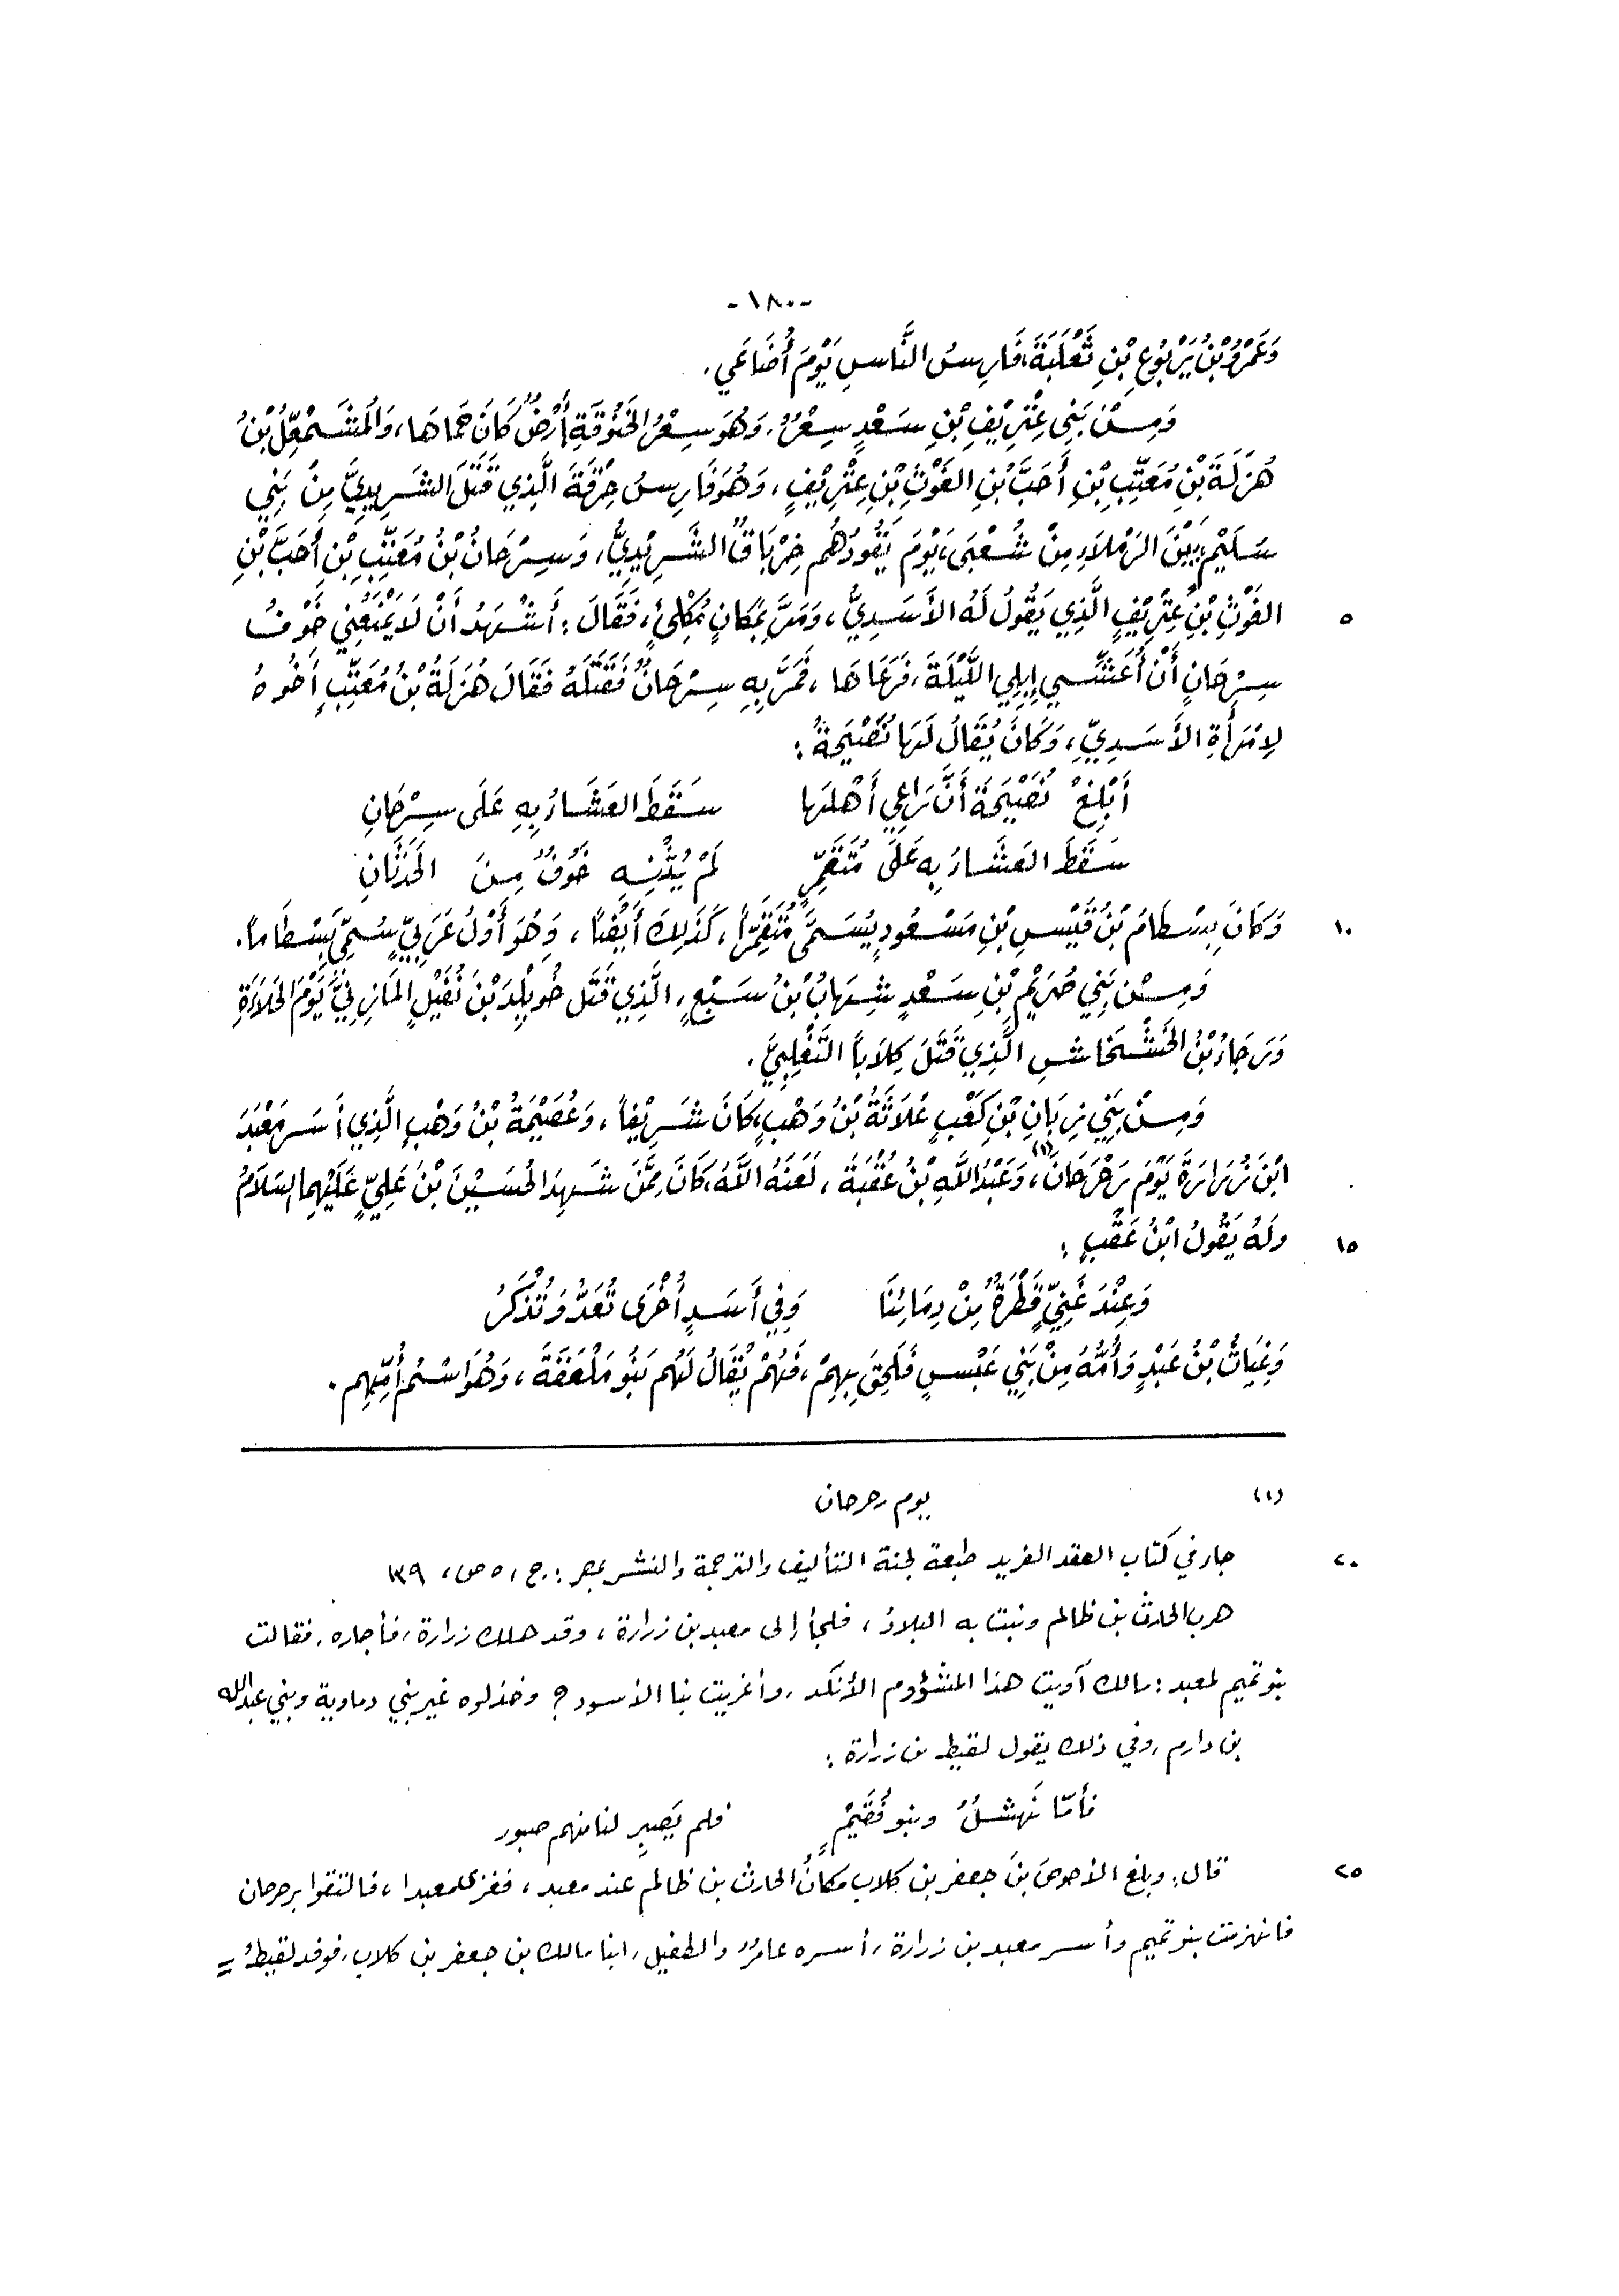 -١٨٠-
وَعَمْرُو بْنُ يَرْبُوعِ بْنِ ثَعْلَبَةَ، فَارِسُ النَّاسِ يَوْمَ أُضَاعَي.
وَمِنْ بَنِي عِتْرِيْفِ بْنِ سَعْدٍ سِعْرٌ، وَهُوَ سِعْرُ الخَنُوقَةِ أَرْضٌ كَانَ حَمَاهَا، وَالمُشْمَعِلُّ بْنُ
هُزَلَةَ بْنِ مُعَتِّبِ بْنِ أَحَبَّ بْنِ الغَوْثِ بْنِ عِتْرِيْفٍ، وَهُوَ فَارِسُ حِزْقَةَ الَّذِي قَتَلَ الشَّرِيدِيَّ مِنْ بَنِي
سُلَيْمٍ، بَيْنَ الرَّمْلَاءِ مِنْ شُعْبَى، يَوْمَ يَقُودُهُم خِرْبَاقٌ الشَّرِيْدِيُّ، وَسِرْحَانُ بْنُ مُعَتِّبِ بْنِ أَحَبَّ بْنِ
٥ الغَوْثِ بْنِ عِتْرِيْفٍ الَّذِي يَقُولُ لَهُ الأَسَدِيُّ، وَمَرَّ بِمَكَانٍ مُكْلِئٍ، فَقَالَ: أَشْهَدُ أَنْ لَا يَمْنَعُنِي خَوْفُ
سِرْحَانٍ أَنْ أُعَشِّي إِبِلِي اللَّيْلَةَ، فَرَعَاهَا، فَمَرَّ بِهِ سِرْحَانٌ فَقَتَلَهُ فَقَالَ هُزَلَةُ بْنُ مُعَتِّبٍ أَخُوهُ
لِامْرَأَةِ الأَسَدِيِّ، وَكَانَ يُقَالُ لَهَا نُصَيْحَةُ:
أَبْلِغْ نُصَيْحَةَ أَنَّ رَاعِيَ أَهْلِهَا سَقَطَ العَشَاءُ بِهِ عَلَى سِرْحَانِ
سَقَطَ العَشَاءُ بِهِ عَلَى مُتَقَمِّرٍ لَمْ يُثْنِهِ خَوْفٌ مِنَ الحَدَثَانِ
١٠ وَكَانَ بِسْطَامُ بْنُ قَيْسِ بْنِ مَسْعُودٍ يُسَمَّى مُتَقَمِّرًا، كَذَلِكَ أَيْضًا، وَهُوَ أَوَّلُ عَرَبِيٍّ سُمِّيَ بِسْطَامًا.
وَمِنْ بَنِي ضُرَيْمِ بْنِ سَعْدٍ شِهَابُ بْنُ سَبْعٍ، الَّذِي قَتَلَ خُوَيْلِدَ بْنَ نُفَيْلٍ المَازِنِيَّ يَوْمَ الحَلَاءَةِ
وَرَجَاءُ بْنُ الخَشْخَاشِ الَّذِي قَتَلَ كِلَابًا التَّغْلِبِيَّ.
وَمِنْ بَنِي زَبَانِ بْنِ كَعْبٍ عُلَاثَةُ بْنُ وَهْبٍ، كَانَ شَرِيْفًا، وَعُصَيْمَةُ بْنُ وَهْبٍ الَّذِي أَسَرَ مَعْبَدَ
ابْنَ زُرَارَةَ يَوْمَ رَحْرَحَانَ،(١) وَعَبْدُ اللَّهِ بْنُ عُقْبَةَ، لَعَنَهُ اللَّهُ، كَانَ مِمَّنْ شَهِدَ الحُسَيْنَ بْنَ عَلِيٍّ عَلَيْهِمَا السَّلَامُ
١٥ وَلَهُ يَقُولُ ابْنُ عَقْبٍ:
وَعِنْدَ غَنِيٍّ قَطْرَةٌ مِنْ دِمَائِنَا وَفِي أَسَدٍ أُخْرَى تُعَدُّ وَتُذْكَرُ
وَغِيَاثُ بْنُ عَبْدٍ وَأُمُّهُ مِنْ بَنِي عَبْسٍ فَلَحِقَ بِهِمْ، فَهُمْ يُقَالُ لَهُم بَنُو مَلْعَقَةَ، وَهُوَ اسْمُ أُمِّهِم.
(١) يوم رحرحان
٢٠ جاء في كتاب العقد الفريد طبعة لجنة التأليف والترجمة والنشر بمصر: ج، ٥ ص، ١٣٩
هرب الحارث بن ظالم ونبت به البلادُ، فلجأ إلى معبد بن زرارة، وقد هلك زرارة، فأجاره، فقالت
بنو تميم لمعبد: مالك آويت هذا المشؤوم الأنكد، وأغريت بنا الأسود؟ وخذلوه غير بني دماوية وبني عبدالله
بن دارم، وفي ذلك يقول لقيط بن زرارة:
فأمّا نَهشلٌ وبنو فُقَيْمٍ فلم يَصبِر لنا منهم صبور
٢٥ قال: وبلغ الأحوصَ بنَ جعفر بن كلاب مكانُ الحارث بن ظالم عند معبد، فغزا معبدا، فالتقوا برحرحان
فانهزمت بنو تميم وأسر معبد بن زرارة، أسره عامرٌ والطفيل، ابنا مالك بن جعفر بن كلاب، فوفد لقيطُ =